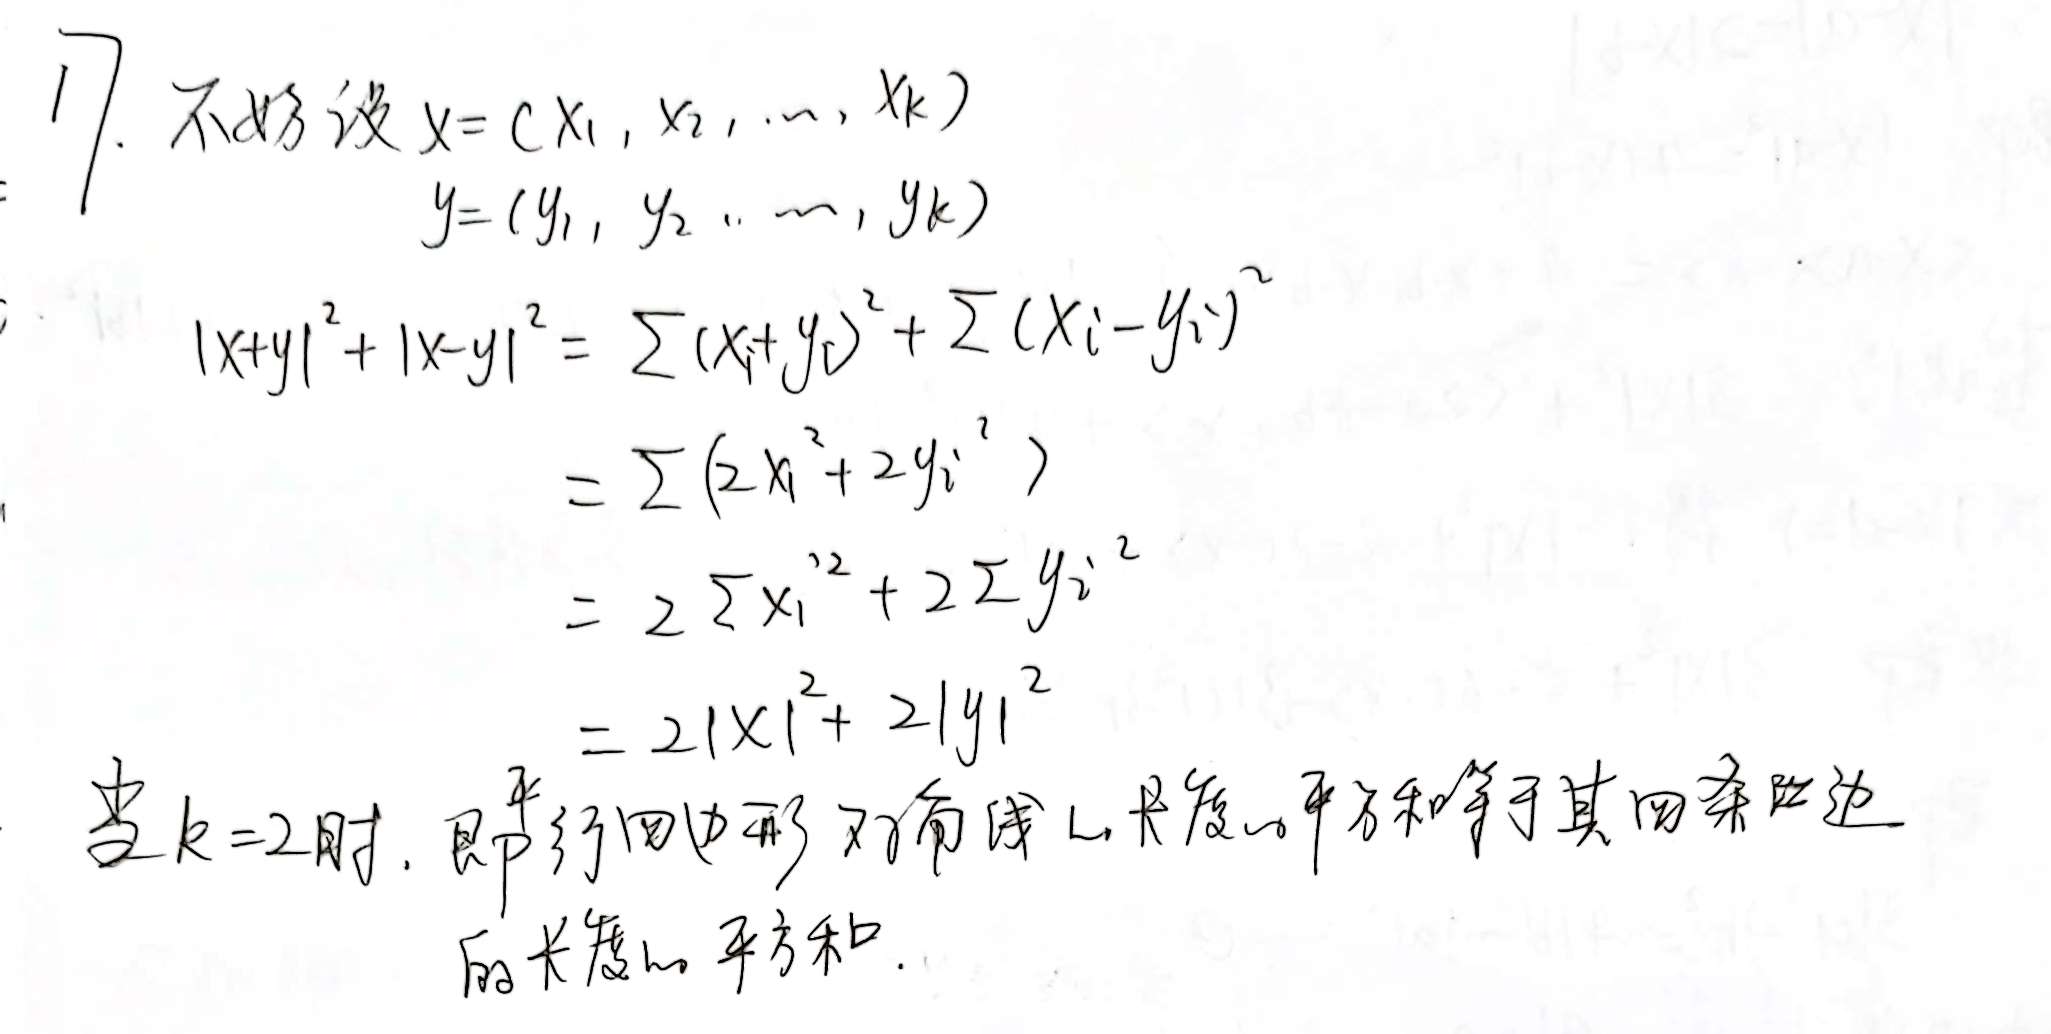 17. 不妨设 x = (x₁, x₂, ..., xₖ)
y = (y₁, y₂, ..., yₖ)
|x+y|² + |x-y|² = ∑(xᵢ+yᵢ)² + ∑(xᵢ-yᵢ)²
= ∑(2xᵢ² + 2yᵢ²)
= 2∑xᵢ² + 2∑yᵢ²
= 2|x|² + 2|y|²
当 k=2时, 即平行四边形对角线的长度的平方和等于其四条边
的长度的平方和.